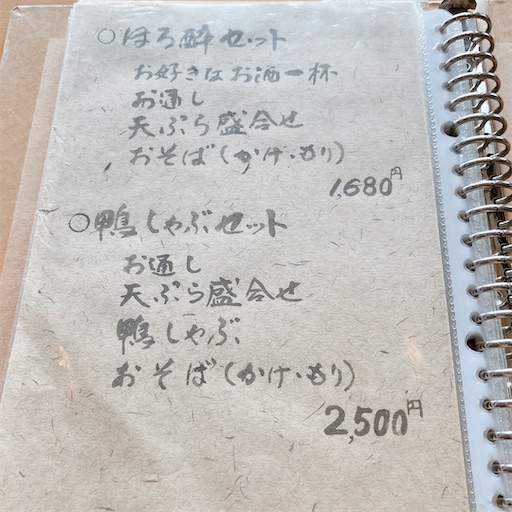 ○ほろ酔セット
お好きなお酒一杯
お通し
天ぷら盛合せ
おそば(かけ・もり)
1,680円
○鴨しゃぶセット
お通し
天ぷら盛合せ
鴨しゃぶ
おそば(かけ・もり)
2,500円